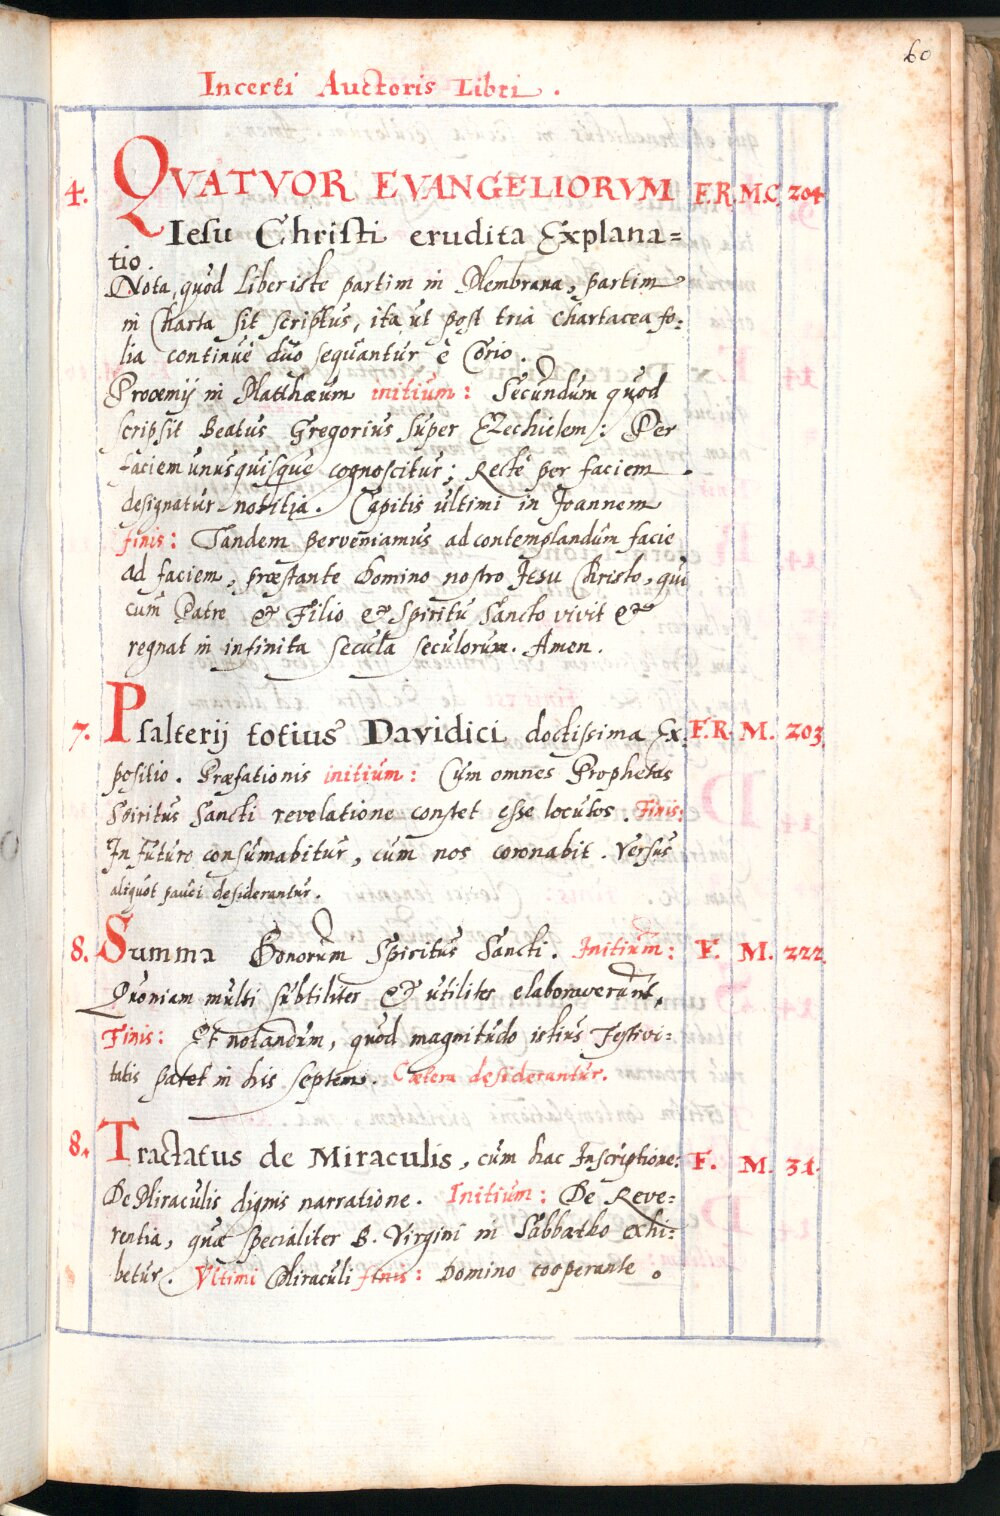 60
Incerti Auctoris Libri.
4. QVATVOR EVANGELIORVM F.R. M.C. 204
Iesu Christi erudita Explana=
tio
Nota, quòd Liber iste partim in Membrana, partim
in Charta sit scriptus, ita ut post tria chartacea fo=
lia continuè duo sequantur è Corio.
Prooemij in Matthæum initium: Secundum quod
scripsit Beatus Gregorius super Ezechielem: Per
faciem unusquisque cognoscitur; Rectè per faciem
designatur notitia. Capitis ultimi in Joannem
finis: Tandem perveniamus ad contemplandum facie
ad faciem, præstante Domino nostro Jesu Christo, qui
cum Patre & Filio & Spiritu Sancto vivit &
regnat in infinita secula seculorum. Amen.
7. Psalterij totius Davidici doctissima Ex= F.R. M. 203
positio. Præfationis initium: Cum omnes Prophetas
Spiritus Sancti revelatione constet esse locutos. Finis:
In futuro consumabitur, cum nos coronabit. Versus
aliquot pauci desiderantur.
8. Summa Donorum Spiritus Sancti. Initium: F. M. 222
Quoniam multi subtiliter & utiliter elaboraverunt,
Finis: Et notandum, quòd magnitudo istius Festivi=
tatis patet in his septem. Cætera desiderantur.
8. Tractatus de Miraculis, cum hac Inscriptione: F. M. 31.
De Miraculis dignis narratione. Initium: De Reve=
rentia, quæ specialiter B. Virgini in Sabbatho exhi=
betur. Ultimi Miraculi finis: Domino cooperante.